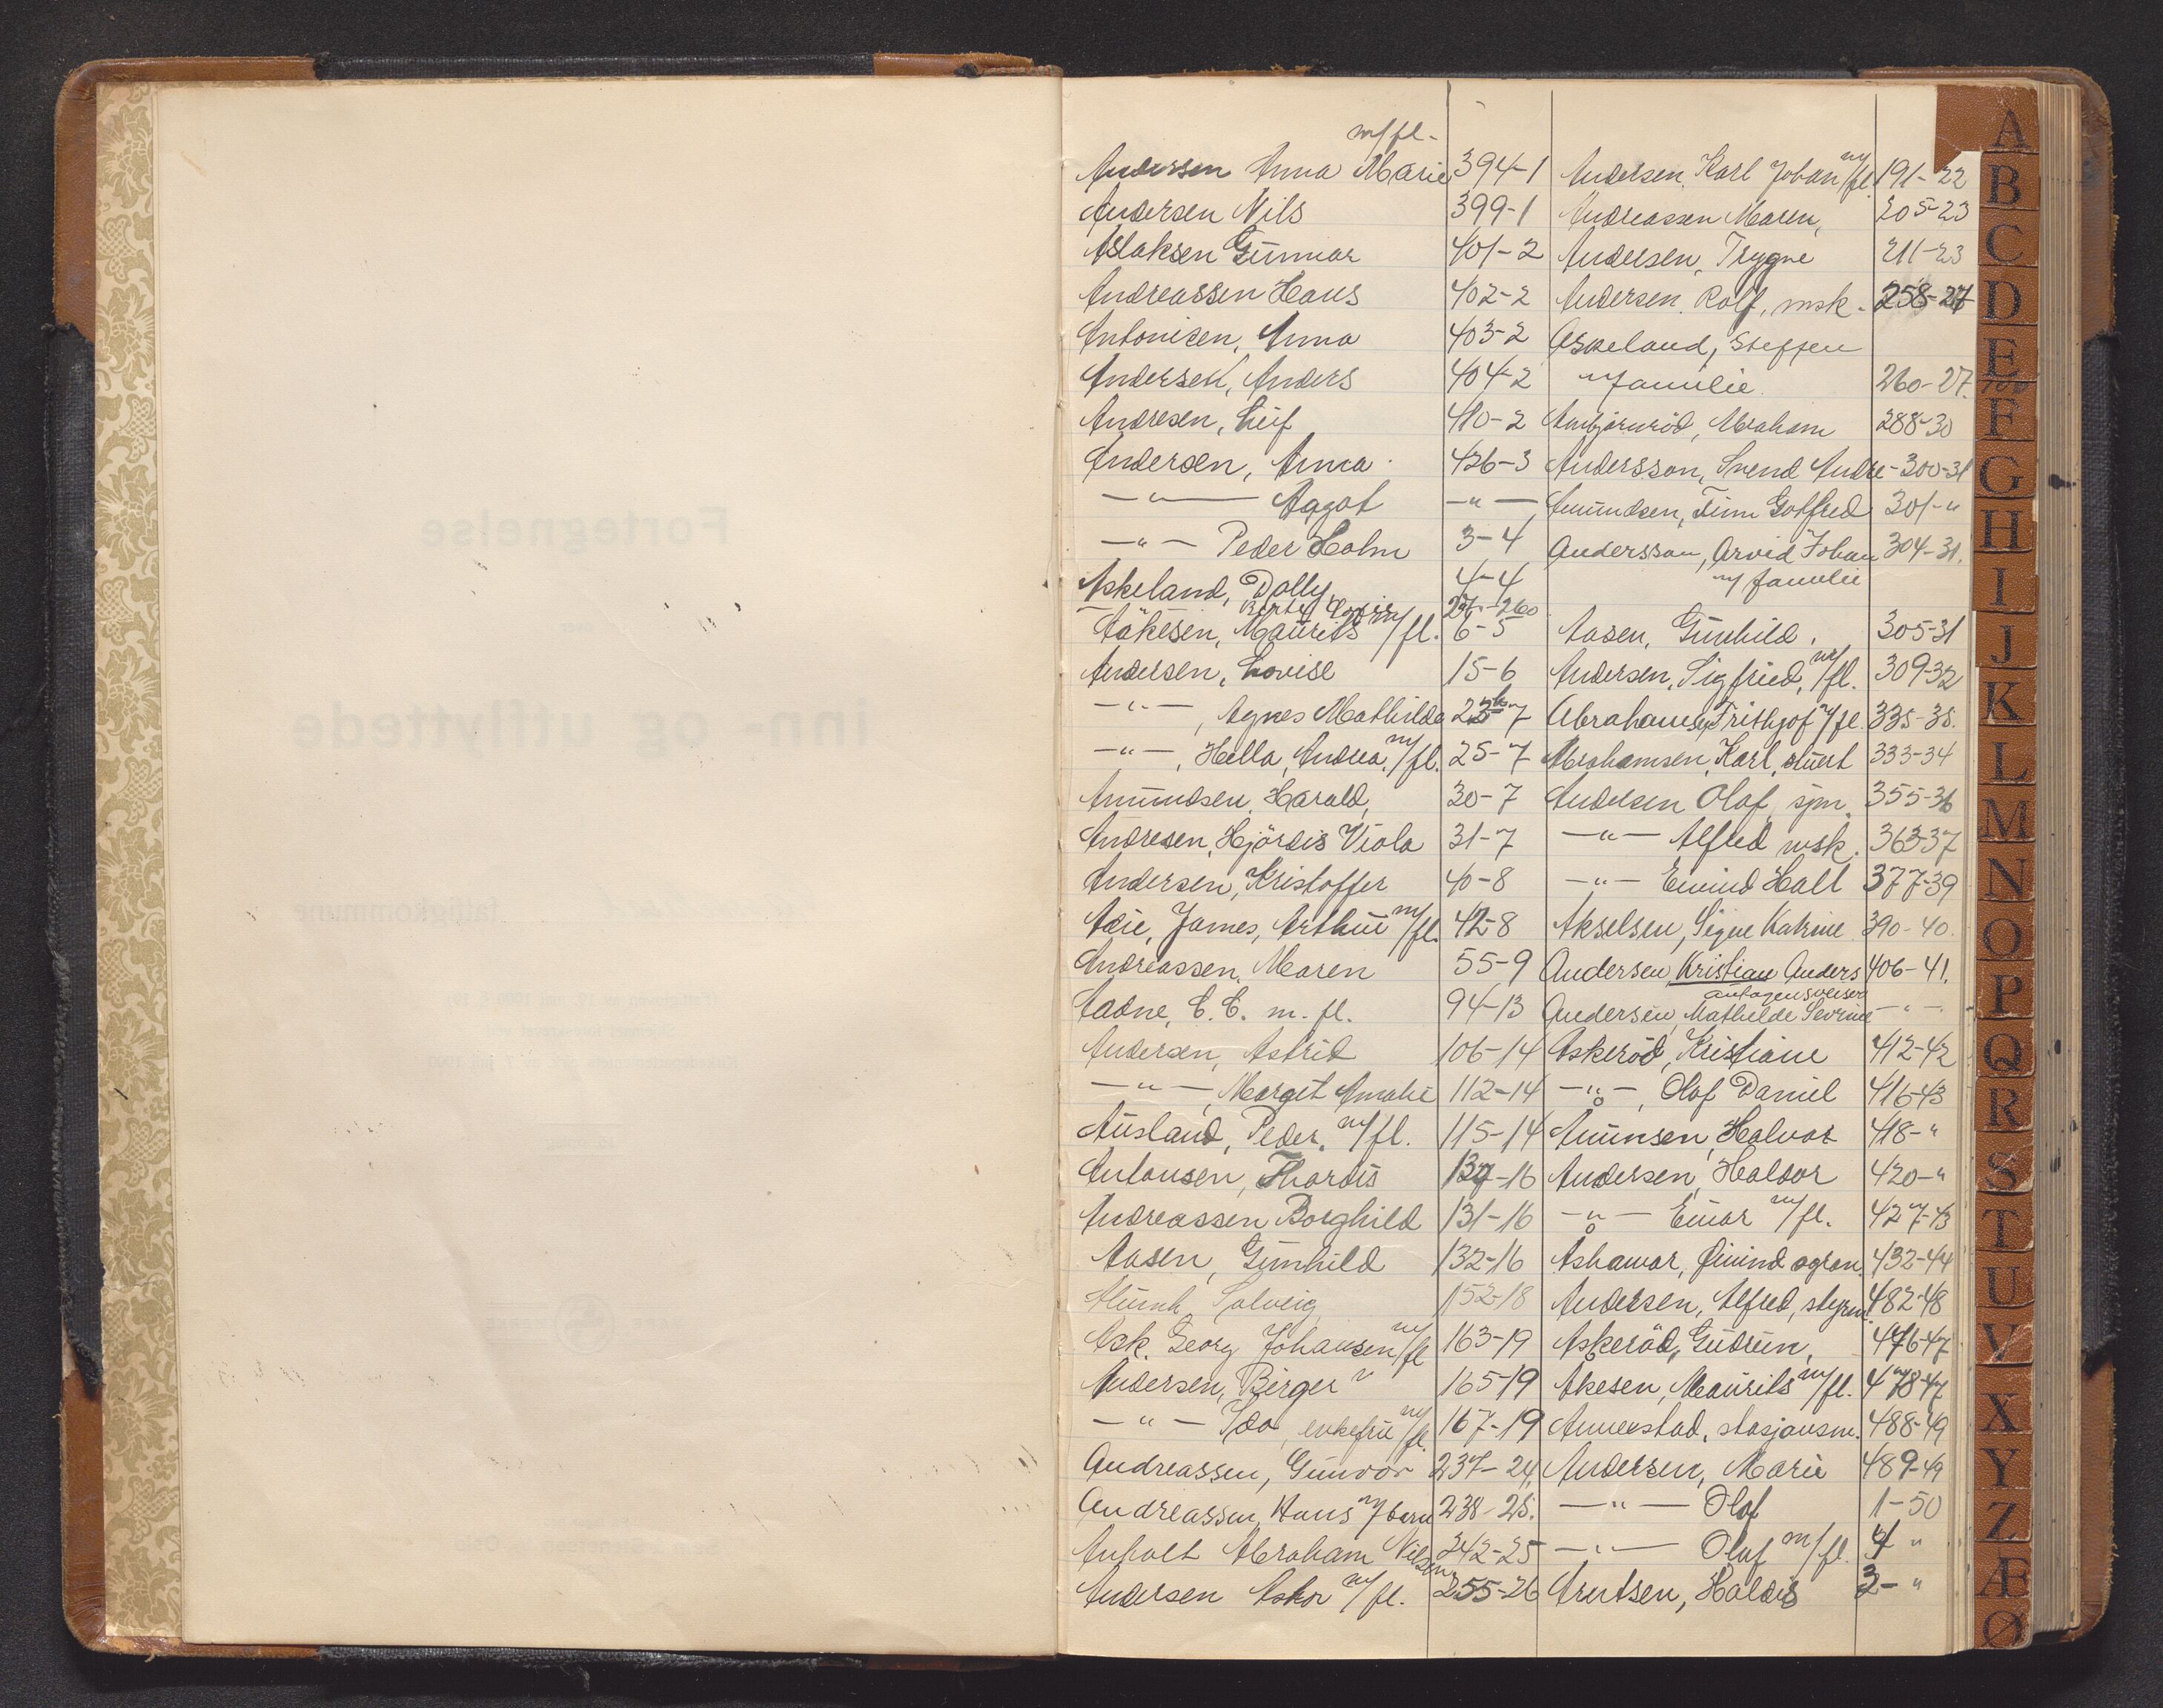 m/fl.
Andersen Anna Marie 394-1
Andersen Nils 399-1
Aslaksen Gunnar 401-2
Andreassen Hans 402-2
Antonisen, Anna 403-2
Andersen, Anders 404-2
Andresen, Leif 410-2
Andersen, Anna 426-3
—"— Aagot —"—
—"— Peder Holm 3-4
Askeland, Dolly 4-4
Aakesen, Maurits m/fl. 6-5
Andersen, Lovise 15-6
—"—, Agnes Mathilde
—"—, Hella, Andrea, m/fl. 25-7
Amundsen, Harald, 30-7
Andresen, Hjördis Viola 31-7
Andersen, Kristoffer 40-8
Adie, James, Arthur m/fl. 42-8
Andreassen, Maren 55-9
Aadne, E. E. m. fl. 94-13
Andersen, Astrid 106-14
—"—, Margit Amalie 112-14
Ausland, Peder, m/fl. 115-14
Antonsen, Thordis 16
Andreassen Borghild 131-16
Aasen, Gunhild 132-16
Solveig 152-18
Ask, Georg Johansen m/fl 163-19
Andersen, Birger 165-19
—"— Ida, enkefru m/fl. 167-19
Andreassen, Gunvor 237-24.
Andreassen, Hans m/barn 238-25.
Anholt Abraham Nilsen 242-25
Andersen Askor m/fl. 255-26
Andersen, Karl Johan m/fl. 191-22
Andreassen Maren, 205-23
Andersen, Trygve 211-23
Andersen, Rolf, msk. 258-27
Askeland, Steffen
m/familie 260-27.
Anbjørnrød, Abraham 288-30
Andersson, Svend Andre - 300-31
Amundsen, Finn Gotfred 301-"
Andersson, Arvid Johan 304-31.
m/familie
Aasen, Gunhild. 305-31
Andersen, Sigfried, m/fl. 309-32
Abrahamsen, Frithjof m/fl. 335-35.
Abrahamsen, Karl, stuert 333-34
Andersen Olaf, sjm. 355-36
—"— Alfred msk. 363-37
—"— Eivind Hall 377-39
Akselsen, Signe Katrine 390-40.
Andersen, Kristian Anders 406-41.
autogensveiser
Andersen, Mathilde Sevrine —"—
Askeröd, Kristiane 412-42
—"—, Olaf Daniel 416-43
Åmunsen, Halvor 418-"
Andersen, Haldor 420-"
—"— Einar m/fl. 427-43
Åshamar, Øivind agron. 432-44
Andersen, Alfred, styrm. 482-48
Askeröd, Gudrun, 476-47
Åkesen, Maurits m/fl. 478-47
Annerstad, stasjonsm. 488-49
Andersen, Marie 489-49
—"— Olaf 1-50
—"— Olaf m/fl. 4 "
Arntsen, Haldis 3-"
A
B
C
D
E
F
G
H
I
J
K
L
M
N
O
P
Q
R
S
T
U
V
X
Y
Z
Æ
Ø